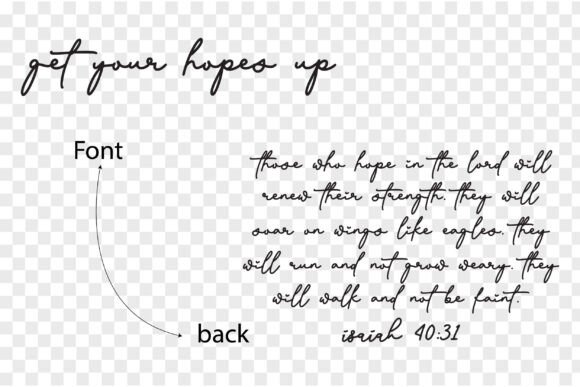 get your hopes up
Font
those who hope in the lord will
renew their strength. they will
soar on wings like eagles. they
will run and not grow weary. they
will walk and not be faint.
isaiah 40:31
back